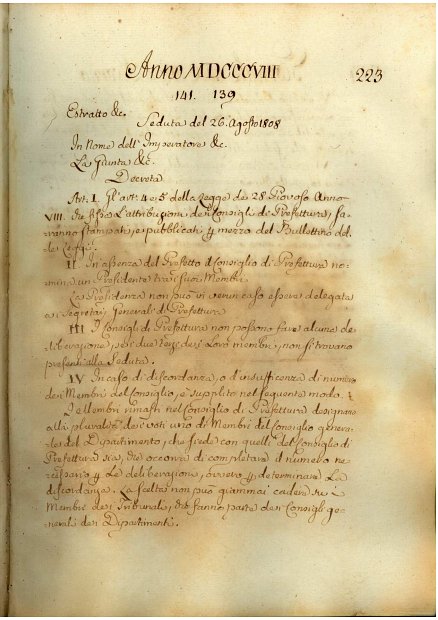 Anno MDCCCVIII 223
141. 139
Estratto &c.
Seduta del 26. Agosto 1808
In Nome dell'Imperatore &c.
La Giunta &c.
Decreta
Art. I. Gl'art. 4 e 5 della Legge de 28 Piovoso Anno
VIII. che fissa l'attribuzioni de Consigli di Prefettura, sa-
ranno stampati, e pubblicati p mezzo del Bullettino del-
le Leggi.
II. In assenza del Prefetto il Consiglio di Prefettura no-
mina un Presidente tra suoi Membri.
La Presidenza non può in verun caso essere delegata
a Segretarj Generali di Prefettura.
III. I Consigli di Prefettura non possono fare alcuna de-
liberazione, se i due terzi de i Loro membri, non si trovano
presenti alla Seduta.
IV. In caso di discordanza, o d'insufficenza di numero
de i Membri del Consiglio, è supplito nel seguente modo.
I Membri rimasti nel Consiglio di Prefettura designano
alla pluralità de i voti uno di Membri del Consiglio gene-
rale del Dipartimento, che siede con quelli del Consiglio di
Prefettura sia, che occorra di completare il numero ne-
cessario p La deliberazione, ovvero p determinare La
discordanza. La scelta non può giammai cadere su i
Membri de i Tribunali, che fanno parte de i Consigli ge-
nerali de i Dipartimenti.